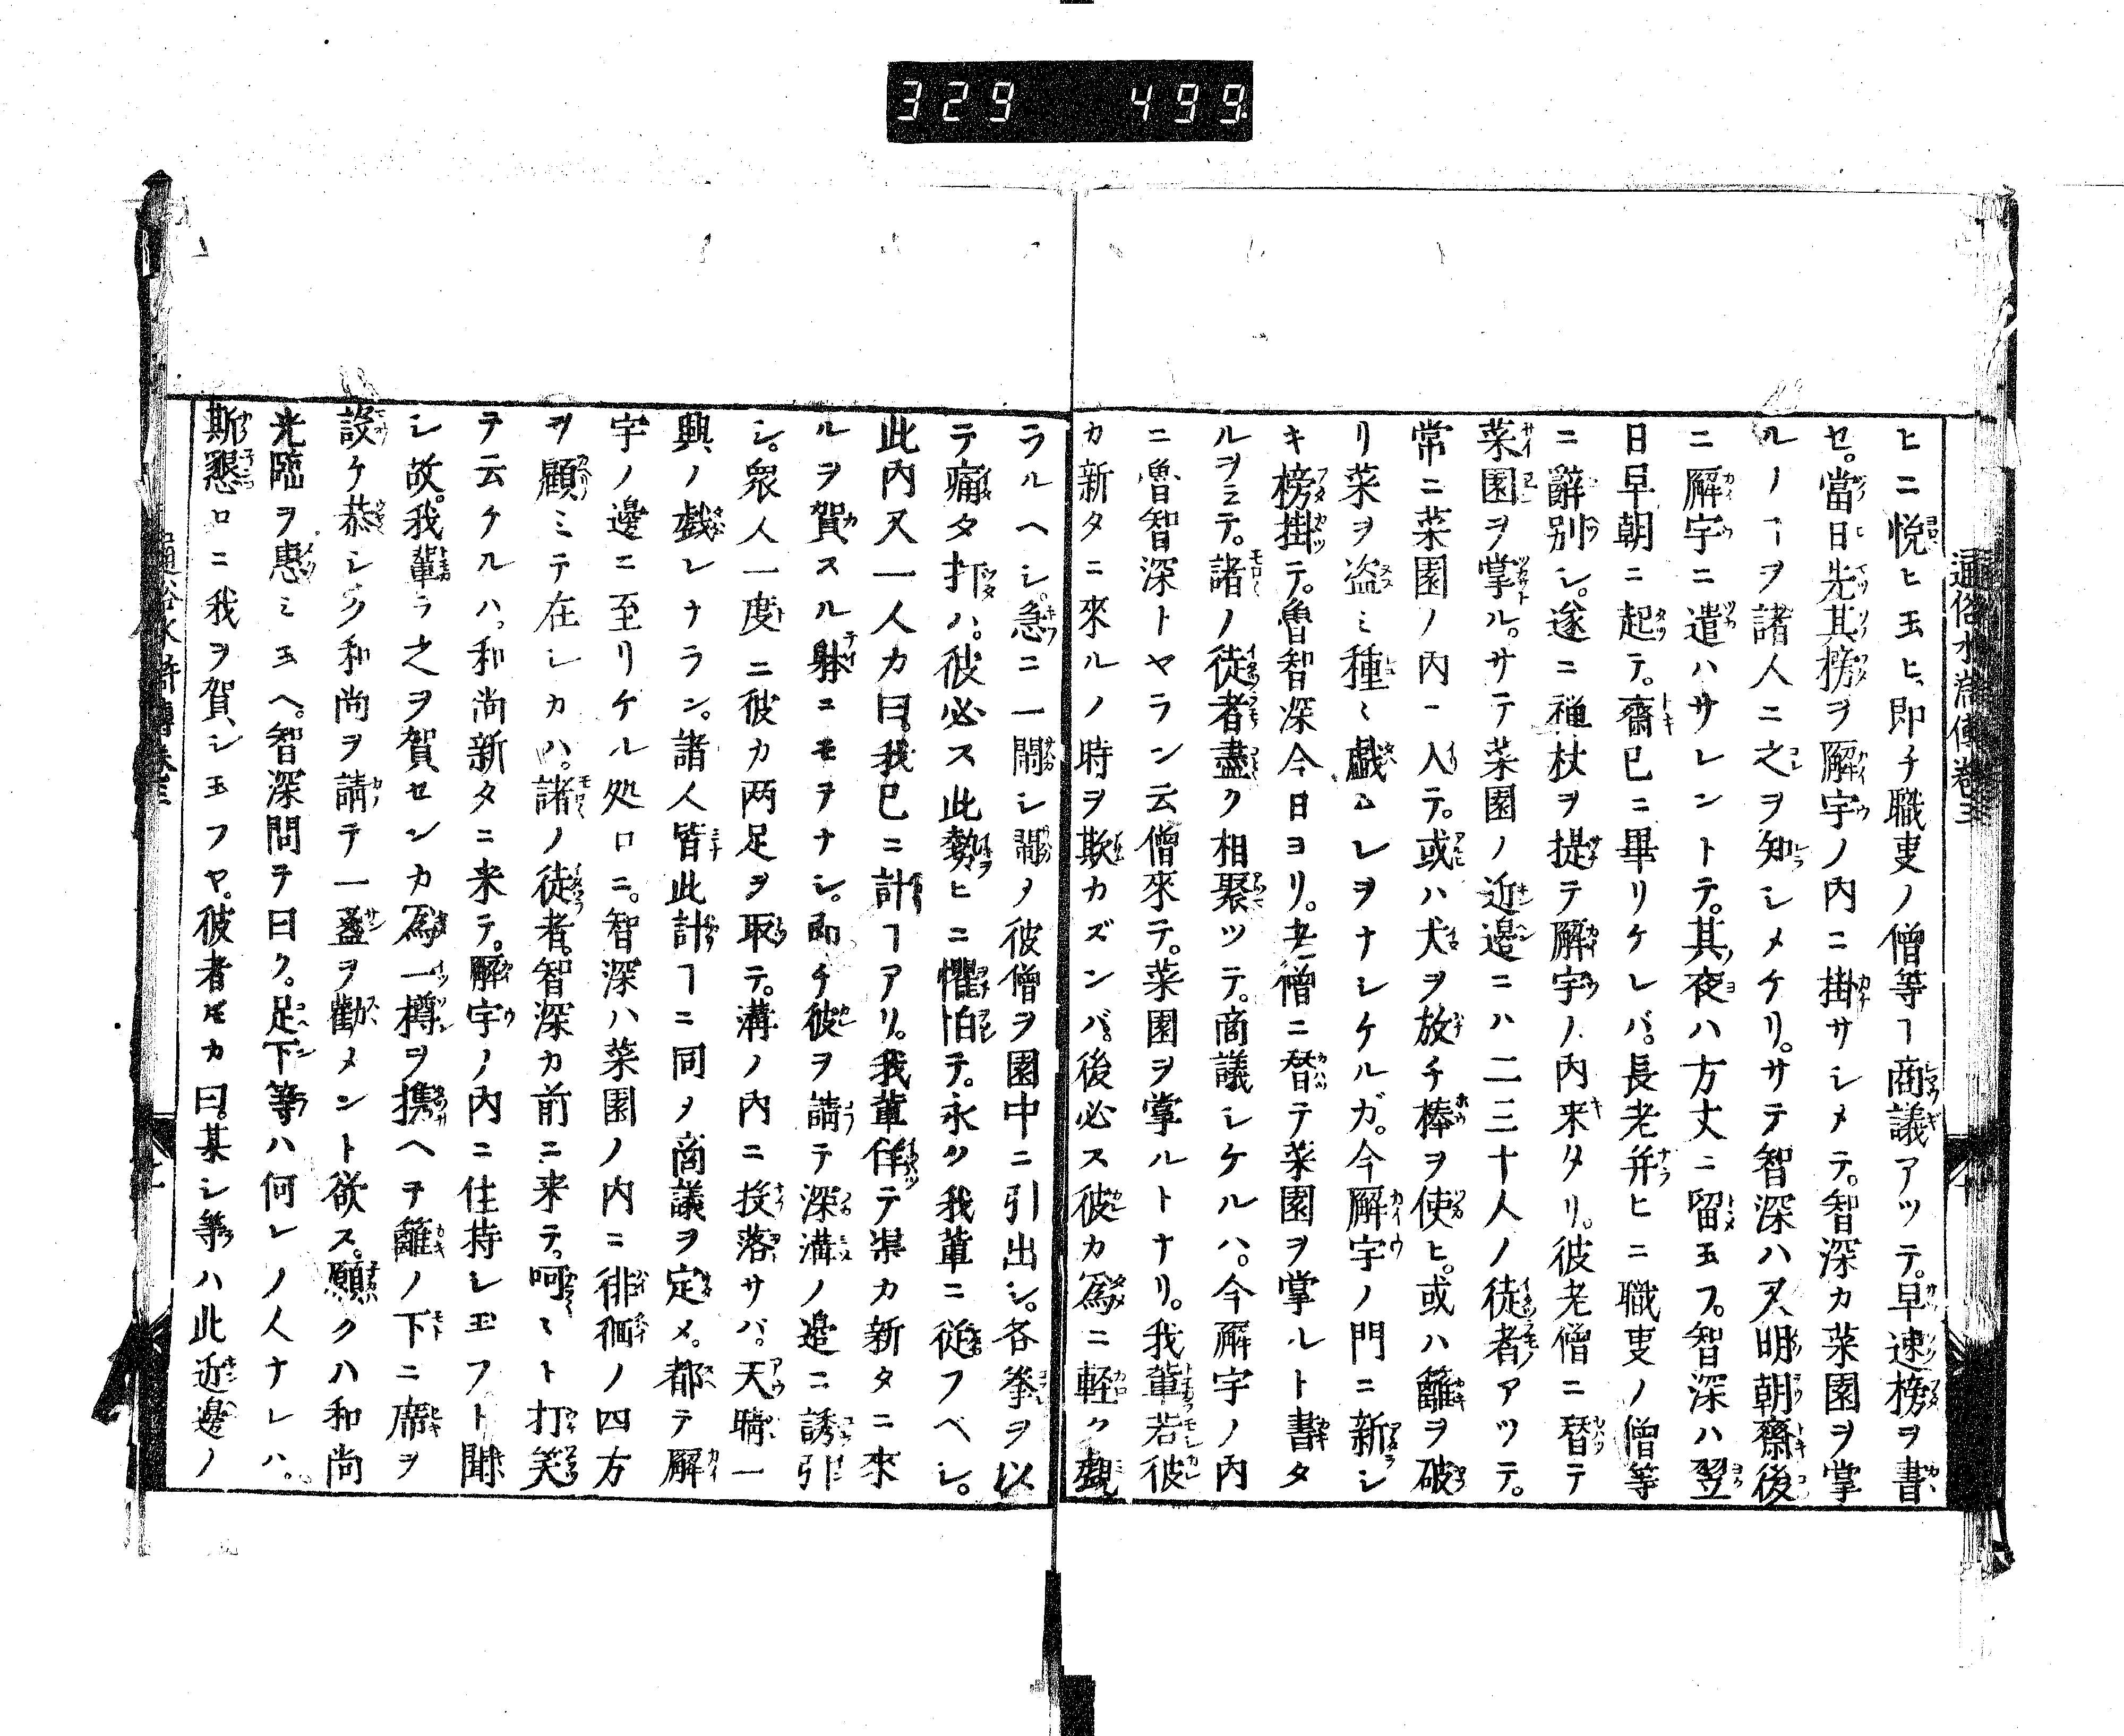 329 499
通俗水滸傳卷三
ヒニ悦ヒ玉ヒ、即チ職吏ノ僧等ヿ商議アツテ。早速榜ヲ書
セ。當日先其榜ヲ廨宇ノ内ニ掛サシメテ。智深カ菜園ヲ掌
ルノヿヲ諸人ニ之ヲ知シメケリ。サテ智深ハ又明朝齋後
ニ廨宇ニ遣ハサレントテ。其夜ハ方丈ニ留玉フ。智深ハ翌
日早朝ニ起テ。齋已ニ畢リケレバ。長老并ヒニ職吏ノ僧等
ニ辭別シ。遂ニ禅杖ヲ提テ廨宇ノ内来タリ。彼老僧ニ替テ
菜園ヲ掌ル。サテ菜園ノ近邊ニハ二三十人ノ徒者アツテ。
常ニ菜園ノ内ニ入テ。或ハ犬ヲ放チ棒ヲ使ヒ。或ハ籬ヲ破
リ菜ヲ盗ミ種〻戯ムレヲナシケルガ。今廨宇ノ門ニ新シ
キ榜掛テ。魯智深今日ヨリ。老僧ニ替テ菜園ヲ掌ルト書タ
ルヲミテ。諸ノ徒者盡ク相聚ツテ。商議シケルハ。今廨宇ノ内
ニ魯智深トヤラン云僧來テ。菜園ヲ掌ルトナリ。我輩若彼
カ新タニ來ルノ時ヲ欺カズンバ。後必ス彼カ為ニ軽ク觀
ラルヘシ。急ニ一閙シ閙ノ彼僧ヲ園中ニ引出シ。各拳ヲ以
テ痛タ打ハ。彼必ス此勢ヒニ懼怕テ。永ク我輩ニ從フベシ。
此内又一人カ曰。我已ニ計ヿアリ。我輩佯テ渠カ新タニ來
ルヲ賀スル躰ニモヲナシ。即チ彼ヲ請テ深溝ノ邉ニ誘引
シ。衆人一度ニ彼カ両足ヲ取テ。溝ノ内ニ投落サバ。天晴一
興ノ戯レナラン。諸人皆此計ヿニ同ノ商議ヲ定メ。都テ廨
宇ノ邊ニ至リケル処ロニ。智深ハ菜園ノ内ニ徘徊ノ四方
ヲ顧ミテ在シカハ。諸ノ徒者。智深カ前ニ来テ。呵〻ト打笑
テ云ケルハ。和尚新タニ来テ。廨宇ノ内ニ住持シ玉フト聞
シ故。我輩ラ之ヲ賀センカ為一樽ヲ携ヘヲ籬ノ下ニ席ヲ
設ケ恭シク和尚ヲ請テ一盞ヲ勸メント欲ス。願クハ和尚
光臨ヲ惠ミ玉ヘ。智深問テ曰ク。足下等ハ何レノ人ナレハ。
斯懇ロニ我ヲ賀シ玉フヤ。彼者𪜈カ曰。某シ等ハ此近邊ノ
通俗水滸傳卷三